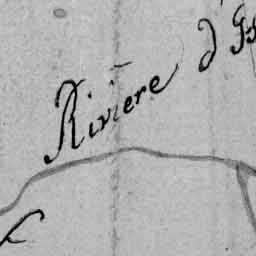 Riviere d'